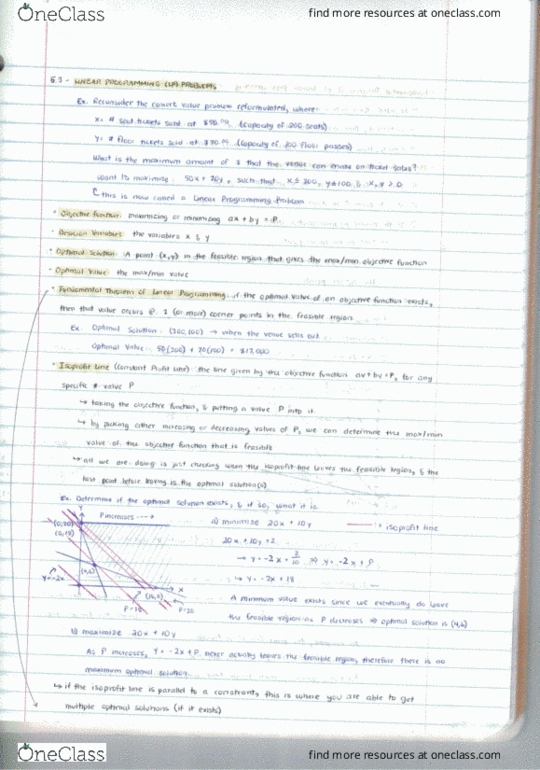 OneClass
find more resources at oneclass.com
5.3 - LINEAR PROGRAMMING (LP) PROBLEMS
Ex. Reconsider the concert value problem reformulated, where:
x= # seat tickets sold at $50.00 (capacity of 200 seats)
y= # floor tickets sold at $70.00 (capacity of 100 floor passes)
What is the maximum amount of $ that the venue can make on ticket sales?
want to maximize 50x + 70y, such that x≤200, y≤100 & x,y ≥0
this is now called a Linear Programming Problem
• Objective function: maximizing or minimizing ax + by = P
• Decision Variables: the variables x & y
• Optimal Solution: A point (x,y) in the feasible region that gives the max/min objective function
• Optimal Value: the max/min value
• Fundamental Theorem of Linear Programming: if the optimal value of an objective function exists,
then that value occurs @ 1 (or more) corner points in the feasible region
Ex. Optimal Solution: (200,100) → when the venue sells out
Optimal Value: 50(200) + 70(100) = $17,000
• Isoprofit Line (Constant Profit Line): the line given by the objective function ax+by=P, for any
specific # value P
↳ taking the objective function, & putting a value P into it
↳ by picking either increasing or decreasing values of P, we can determine the max/min
value of the objective function that is feasible
↳ all we are doing is just checking when the isoprofit line leaves the feasible region, & the
last point before leaving is the optimal solution(s)
Ex. Determine if the optimal solution exists, & if so, what it is
P increases
i) minimize 20x + 10y
= isoprofit line
y=-2x
P=18
P=20
x
→ y = -2x + 18
A minimum value exists since we eventually do leave
the feasible region as P decreases ⇒ optimal solution is (4,6)
ii) maximize 20x + 10y
As P increases, y = -2x + P never actually leaves the feasible region, therefore there is no
maximum optimal solution.
↳ if the isoprofit line is parallel to a constraint, this is where you are able to get
multiple optimal solutions (if it exists)
OneClass
find more resources at oneclass.com